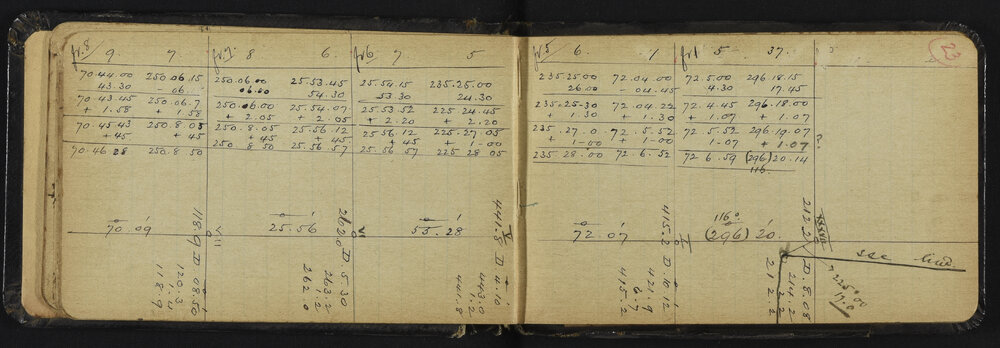 fr.8 9 7. fr.7. 8 6. fr.6 7 5
70.44.00 250.06.15 250.06.00 25.53.45 25.54.15 235.25.00
43.30 - 06. 06.00 54.30 53.30 24.30
70.43.45 250.06.7 250.06.00 25.54.07 25.53.52 225.24.45
+ 1.58 + 1.58 + 2.05 + 2.05 + 2.20 + 2.20
70.45.43 250.8.05 250.8.05 25.56.12 25.56.12 225.27.05
+45 +45 +45 +45 +45 1-00
70.46 28 250.8 50 250 8 50 25.56 57 25.56 57 225 28 05
70.09 25.56 55.28
118.9 D 08.50
120.3
1.4
118.9
VIII
262.0 D 5.30
263.2
1.2
262.0
VI
441.8 D 4.10
443.0
1.2
441.8
V
fr.5 6. 1 fr.1 5 37. 23
235.25.00 72.04.00 72.5.00 296.18.15
26.00 - 04.45 - 4.30 17.45
235.25-30 72.04.22 72.4.45 296.18.00
+ 1.30 + 1.30 + 1.07 + 1.07
235.27.0 72.5.52 72.5.52 296.19.07
+1-00 + 1-00 1-07 + 1.07
235.28.00 72.6.52 72 6.59 (296) 20.14
116.
?
72.07 116° (296) 20.
415.2 D 10.12
421.9
6.7
415.2
I
212.2 D. 8.08
214.2
2.2
21 2.2
see bird.
225.00
17.0